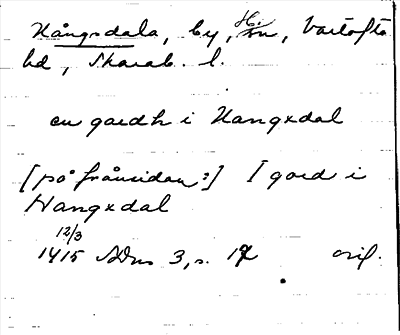 Hångsdala, by, Hs. sn, Vartofta
hd, Skarab. l.
en gardh i Hangxdal
[på frånsidan:] I gard i
Hangxdal
12/3
1415 SDns 3, s. 17 orig.